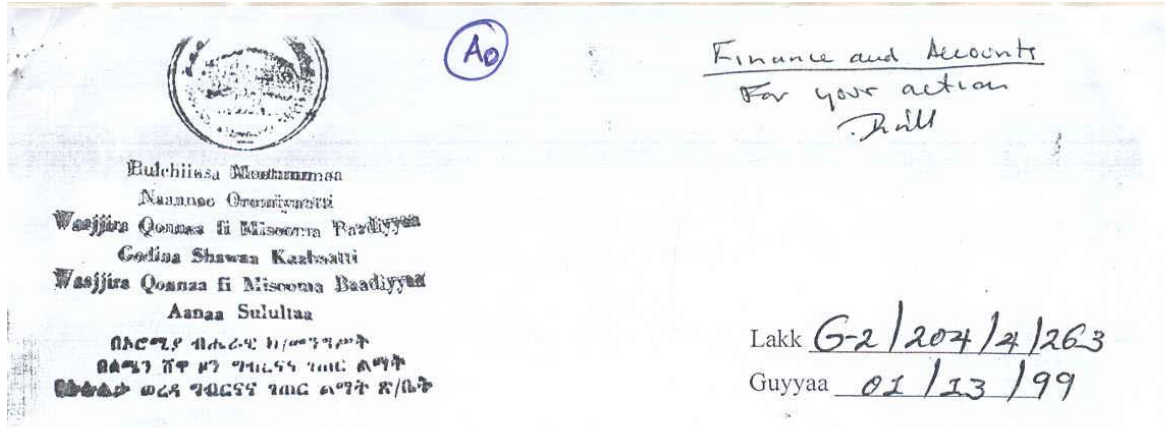 A0
Finance and Accounts
For your action
Bulchiissa Mootummaa
Naannoo Oromiyaatti
Waajjira Qonnaa fi Misooma Baadiyyaa
Godina Shawaa Kaabaatti
Waajjira Qonnaa fi Misooma Baadiyyaa
Aanaa Sulultaa
በኦሮሚያ ብሔራዊ ክ/መንግሥት
በሰሜን ሸዋ ዞን ግብርናና ገጠር ልማት
በሱሉልታ ወረዳ ግብርናና ገጠር ልማት ጽ/ቤት
Lakk G-2/204/4/263
Guyyaa 01/13/99